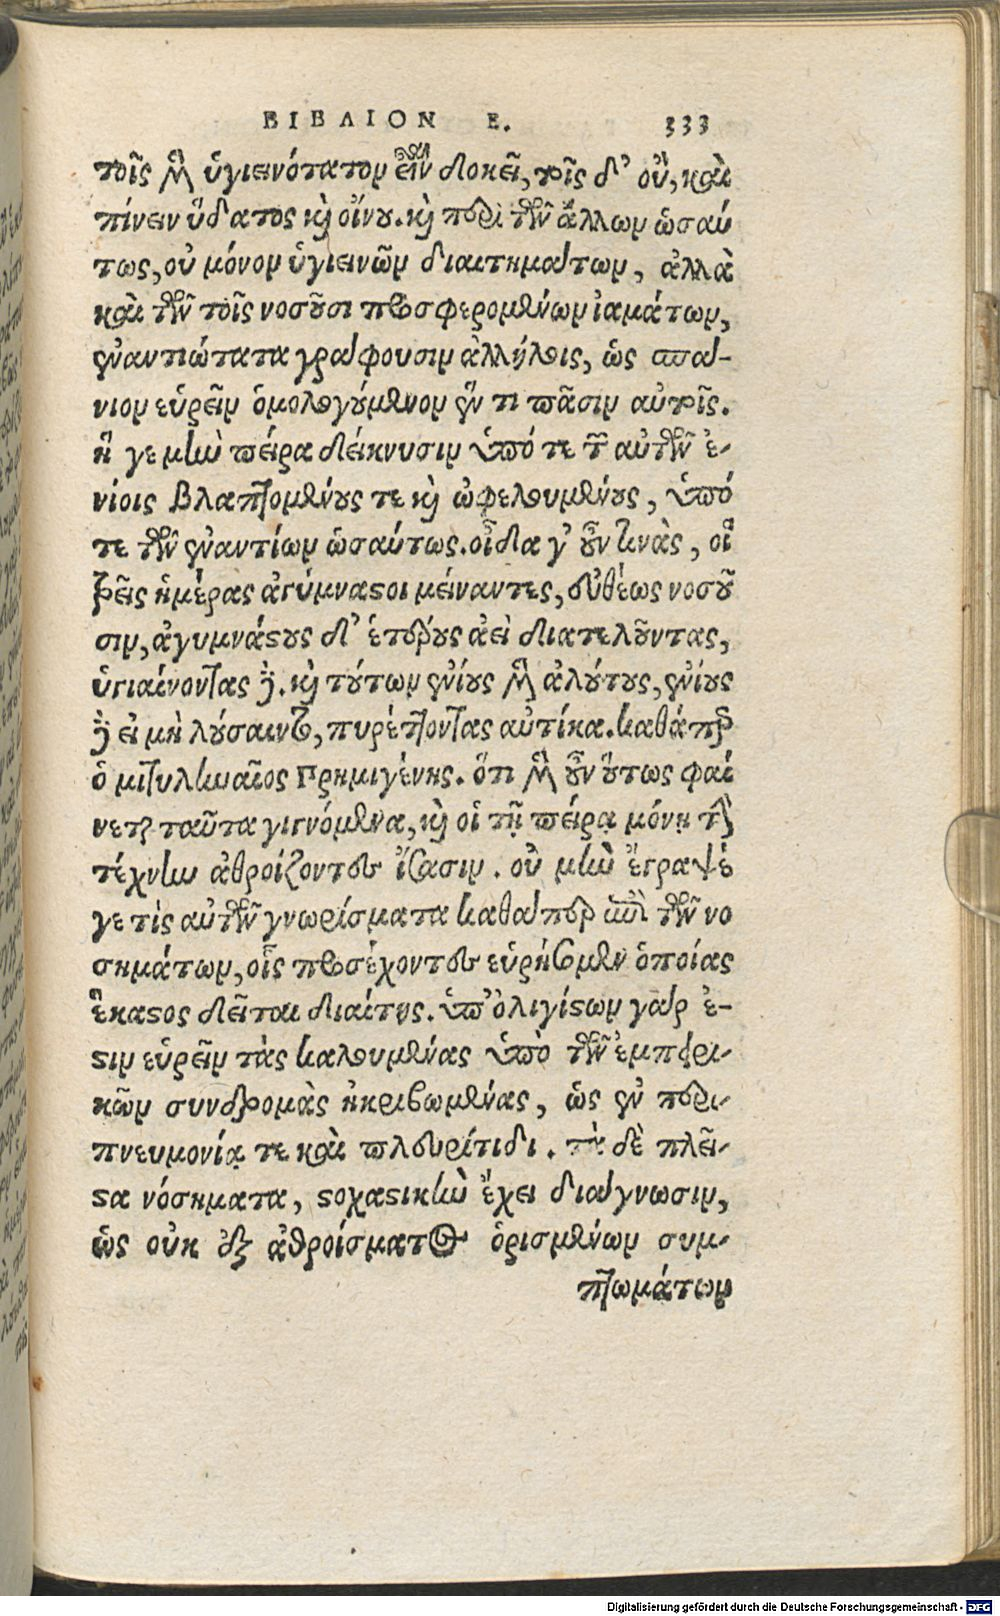 ΒΙΒΛΙΟΝ Ε. 333
τοῖς μὲν ὑγιεινότατον εἶναι δοκεῖ, τοῖς δ' οὔ, καὶ
πίνειν ὕδατος καὶ οἴνου. καὶ περὶ τῶν ἄλλων ὡσαύ
τως, οὐ μόνον ὑγιεινῶν διαιτημάτων, ἀλλὰ
καὶ τῶν τοῖς νοσοῦσι προσφερομένων ἰαμάτων,
ἐναντιώτατα γράφουσιν ἀλλήλοις, ὡς σπά-
νιον εὑρεῖν ὁμολογούμενον ἕν τι πᾶσιν αὐτοῖς.
ἥ γε μὴν πεῖρα δείκνυσιν ὑπό τε τῶν αὐτῶν ἐ-
νίοις βλαπτομένους τε καὶ ὠφελουμένους, ὑπό
τε τῶν ἐναντίων ὡσαύτως. οἶδα γ' οὖν τινὰς, οἳ
τρεῖς ἡμέρας ἀγύμναστοι μείναντες, εὐθέως νοσοῦ
σιν, ἀγυμνάστους δ' ἑτέρους ἀεὶ διατελοῦντας,
ὑγιαίνοντας δέ. καὶ τούτων ἐνίους μὲν ἀλούτους, ἐνίους
δὲ εἰ μὴ λούσαιντο, πυρέττοντας αὐτίκα. καθάπερ
ὁ μιτυληναῖος Πρημιγένης. ὅτι μὲν οὖν οὕτως φαί
νεται ταῦτα γιγνόμενα, καὶ οἱ τῇ πείρᾳ μόνῃ τὴν
τέχνην ἀθροίζοντες ἴσασιν. οὐ μὴν ἔγραψέ
γε τὶς αὐτῶν γνωρίσματα καθάπερ ἐπὶ τῶν νο
σημάτων, οἷς προσέχοντες εὑρήσομεν ὁποίας
ἕκαστος δεῖται διαίτης. ὑπ' ὀλιγίστων γάρ ἐ-
στιν εὑρεῖν τὰς καλουμένας ὑπὸ τῶν ἐμπειρι-
κῶν συνδρομὰς ἠκριβωμένας, ὡς ἐν περι-
πνευμονίᾳ τε καὶ πλευρίτιδι. τὰ δὲ πλεῖ-
στα νόσηματα, στοχαστικὴν ἔχει διάγνωσιν,
ὡς οὐκ ἐξ ἀθροίσματος ὁρισμένων συμ-
πτωμάτων
Digitalisierung gefördert durch die Deutsche Forschungsgemeinschaft - DFG